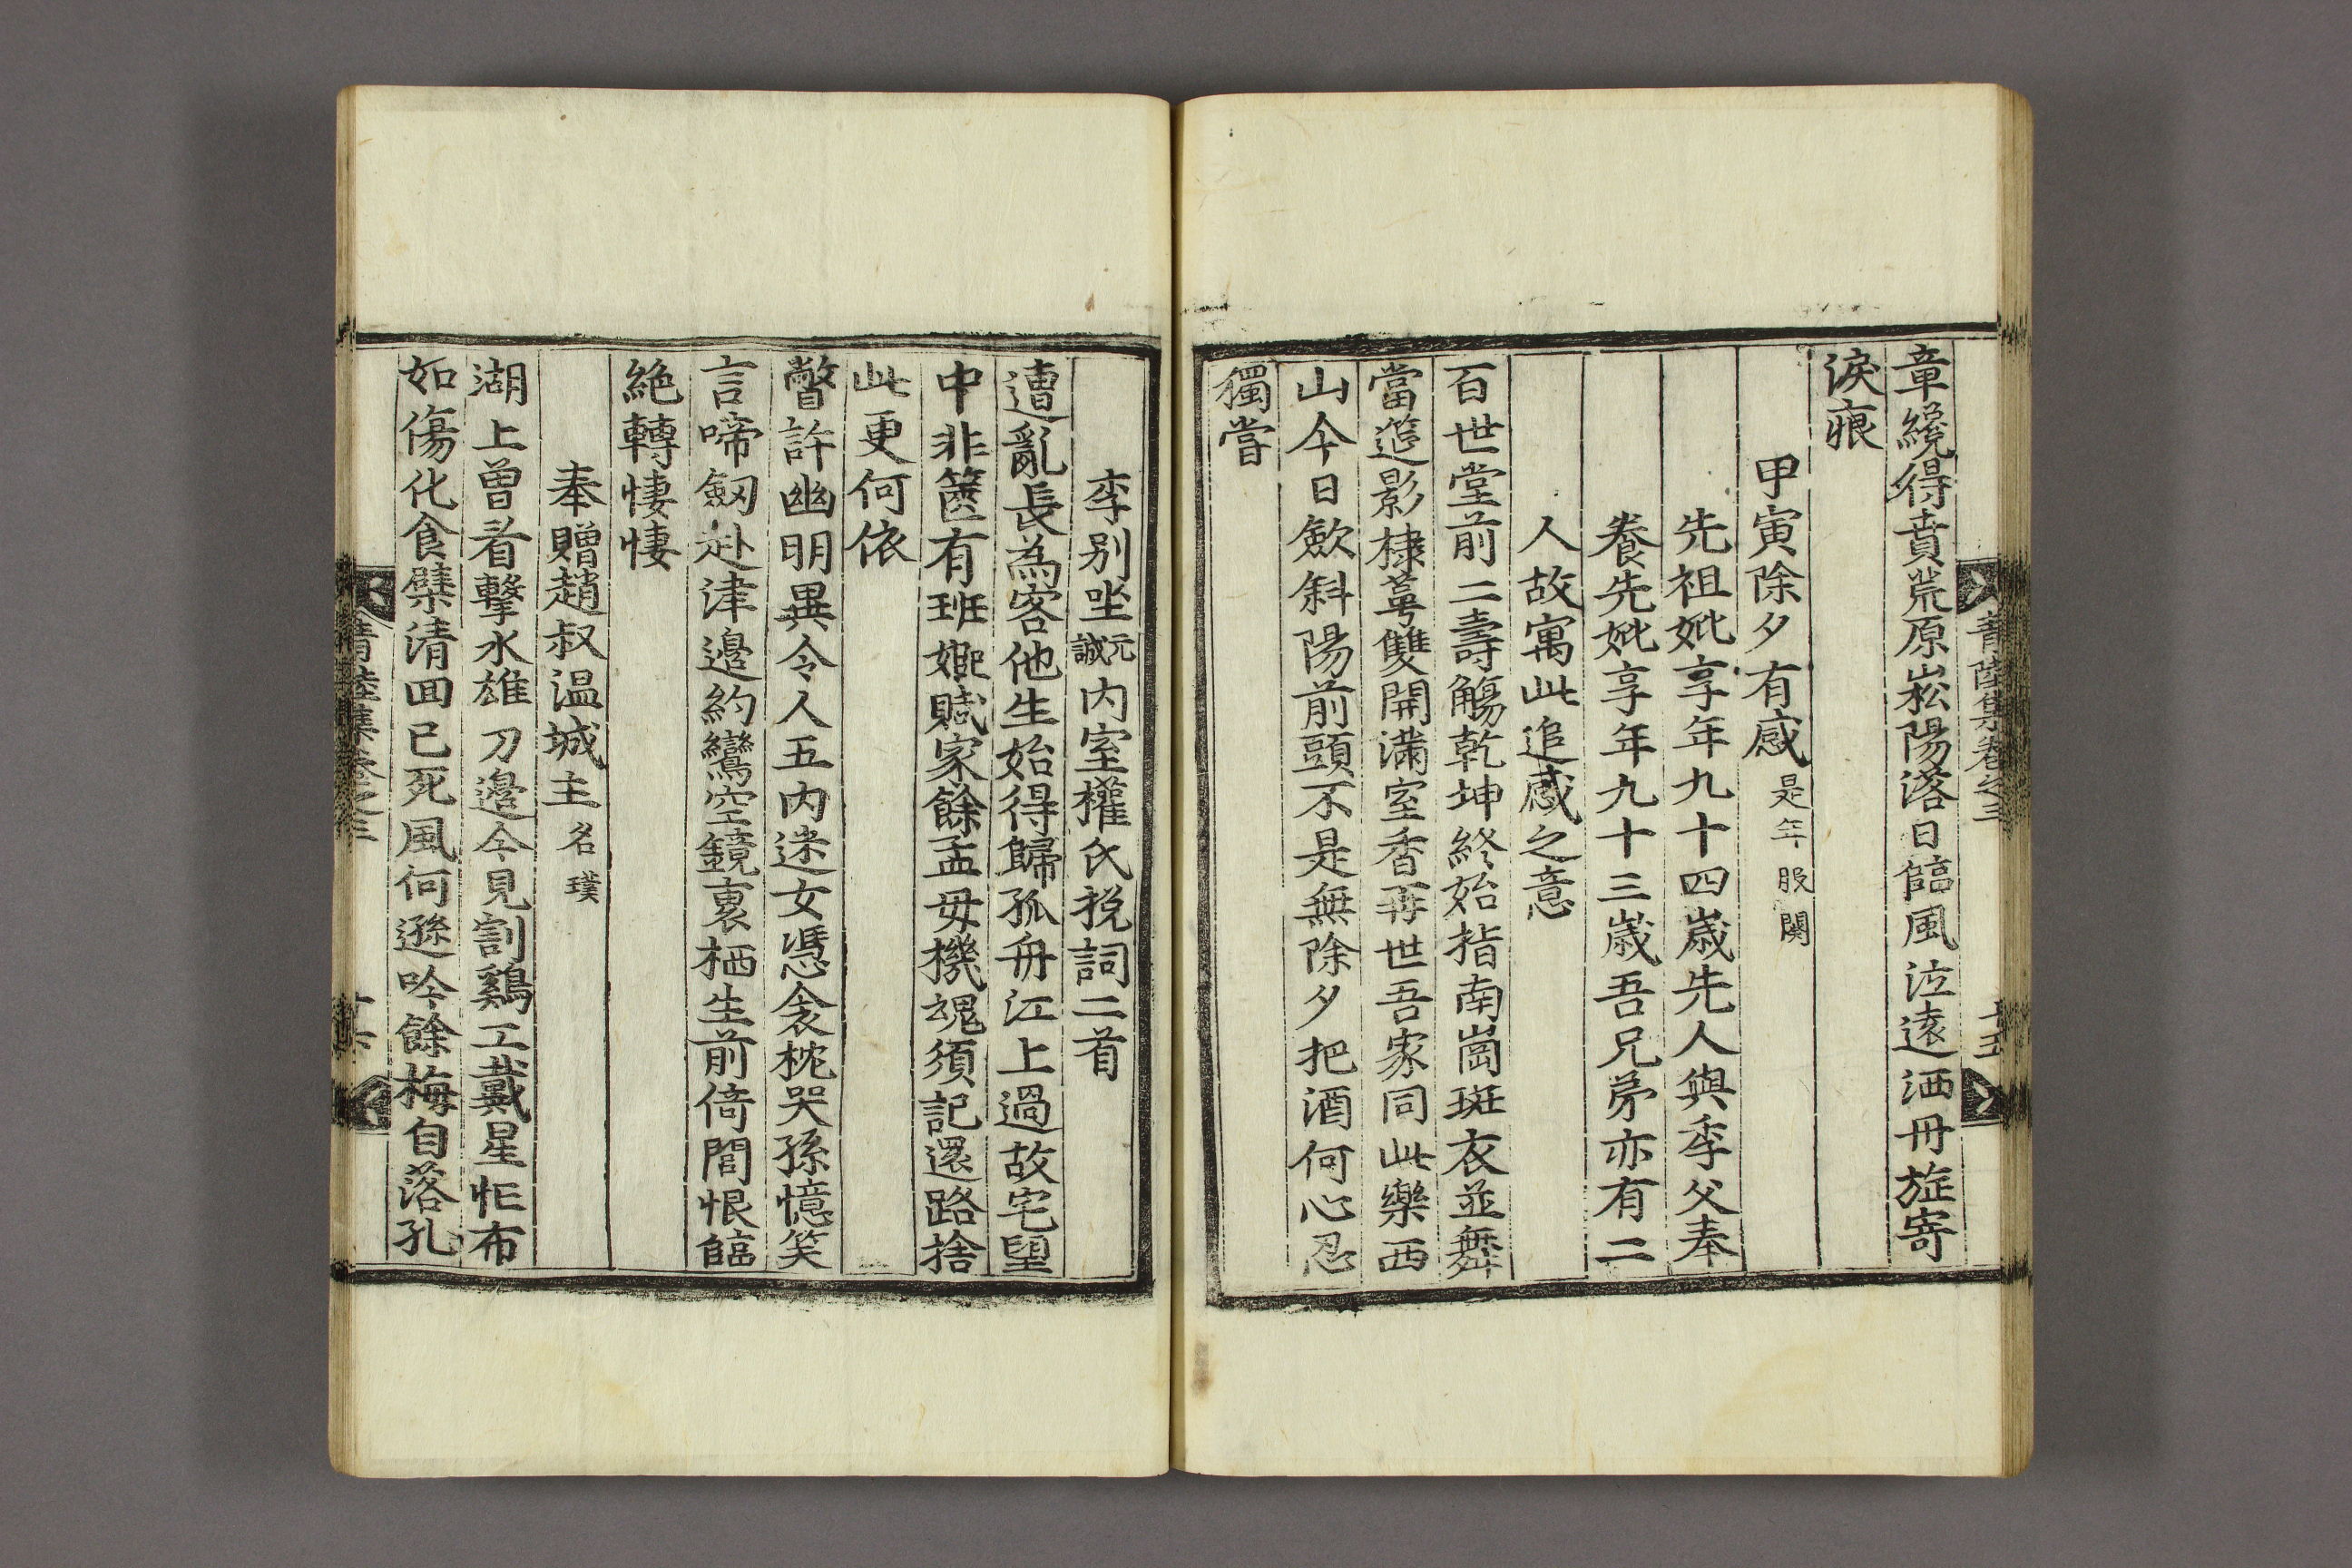 青陸集卷之三
十五
章纔得賁荒原崧陽落日䭇風泣遠洒丹旌寄
淚痕
甲寅除夕有感是年服闋
先祖妣享年九十四歲先人與季父奉
養先妣享年九十三歲吾兄弟亦有二
人故寓此追感之意
百世堂前二壽觴乾坤終始指南崗斑衣並舞
當筵影棣萼雙開滿室香再世吾家同此樂西
山今日歛斜陽前頭不是無除夕把酒何心忍
獨嘗
李別坐元誠內室權氏挽詞二首
遭亂長為客他生始得歸孤舟江上過故宅望
中非篋有班姬賦家餘孟母機魂須記還路捨
此更何依
瞥許幽明異令人五內迷女憑衾枕哭孫憶笑
言啼劒赴津邊約鸞空鏡裏栖生前倚閭恨䭇
絶轉悽悽
奉贈趙叔温城主名璞
湖上曾看擊水雄刀邊今見割鷄工戴星忙布
如傷化食檗清回已死風何遜吟餘梅自落孔
青陸集卷之三
十六